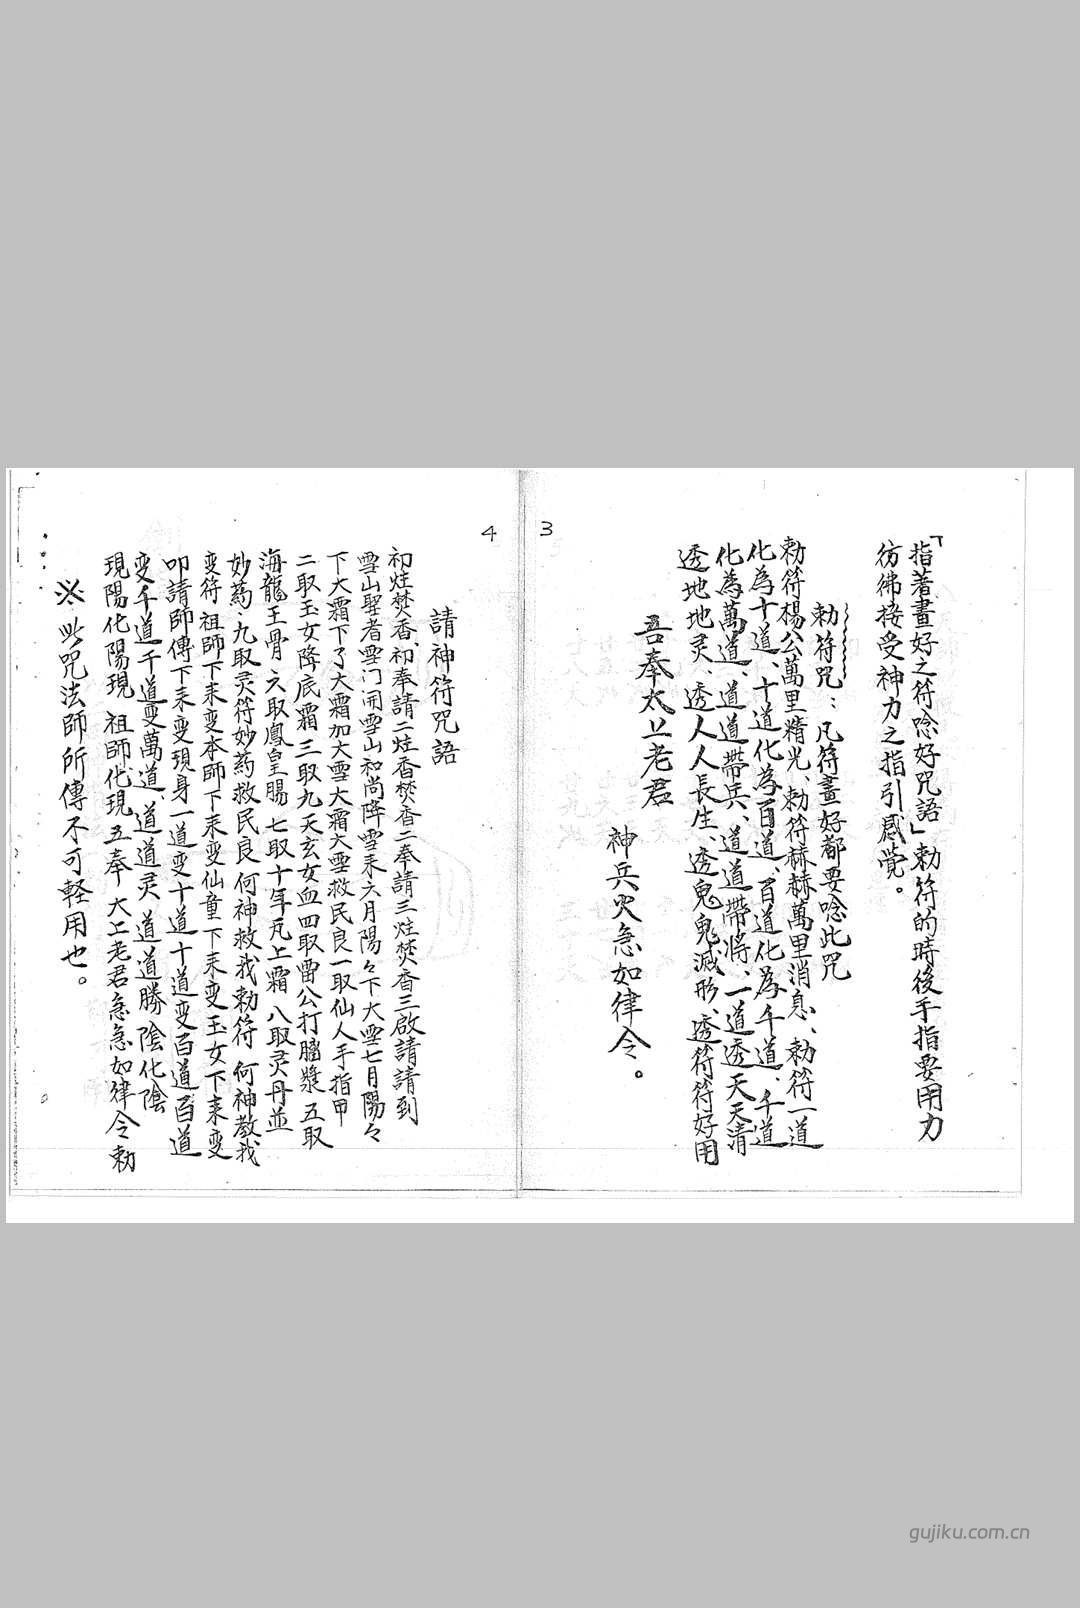 3
「指著畫好之符唸好咒語」勅符的時後手指要用力
彷彿接受神力之指引感覺。
勅符咒：凡符畫好都要唸此咒
勅符楊公萬里精光、勅符赫赫萬里消息、勅符一道
化為十道、十道化為百道、百道化為千道、千道
化為萬道、道道帶兵、道道帶將、一道透天天清
透地地灵、透人人長生、透鬼鬼滅形、透符符好用
吾奉太上老君
神兵火急如律令。
4
請神符咒語
初炷焚香、初奉請二炷香焚香二奉請三炷焚香三啟請請到
雪山聖者雪门開雪山和尚降雪来六月陽々下大雪七月陽々
下大霜下了大霜加大雪大霜大雪救民良一取仙人手指甲
二取玉女降底霜三取九天玄女血四取雷公打腦漿五取
海龍王骨六取鳳皇腸七取十年瓦上霜八取灵丹並
妙葯、九取灵符妙葯救民良何神救我勅符何神教我
变符祖師下来变本師下来变仙童下来变玉女下来变
叩請師傳下来变現身一道变十道十道变百道百道
变千道千道变萬道、道道灵道道勝陰化陰
現陽化陽現祖師化現五奉大上老君急急如律令勅
※此咒法師所傳不可軽用也。
gujiku.com.cn